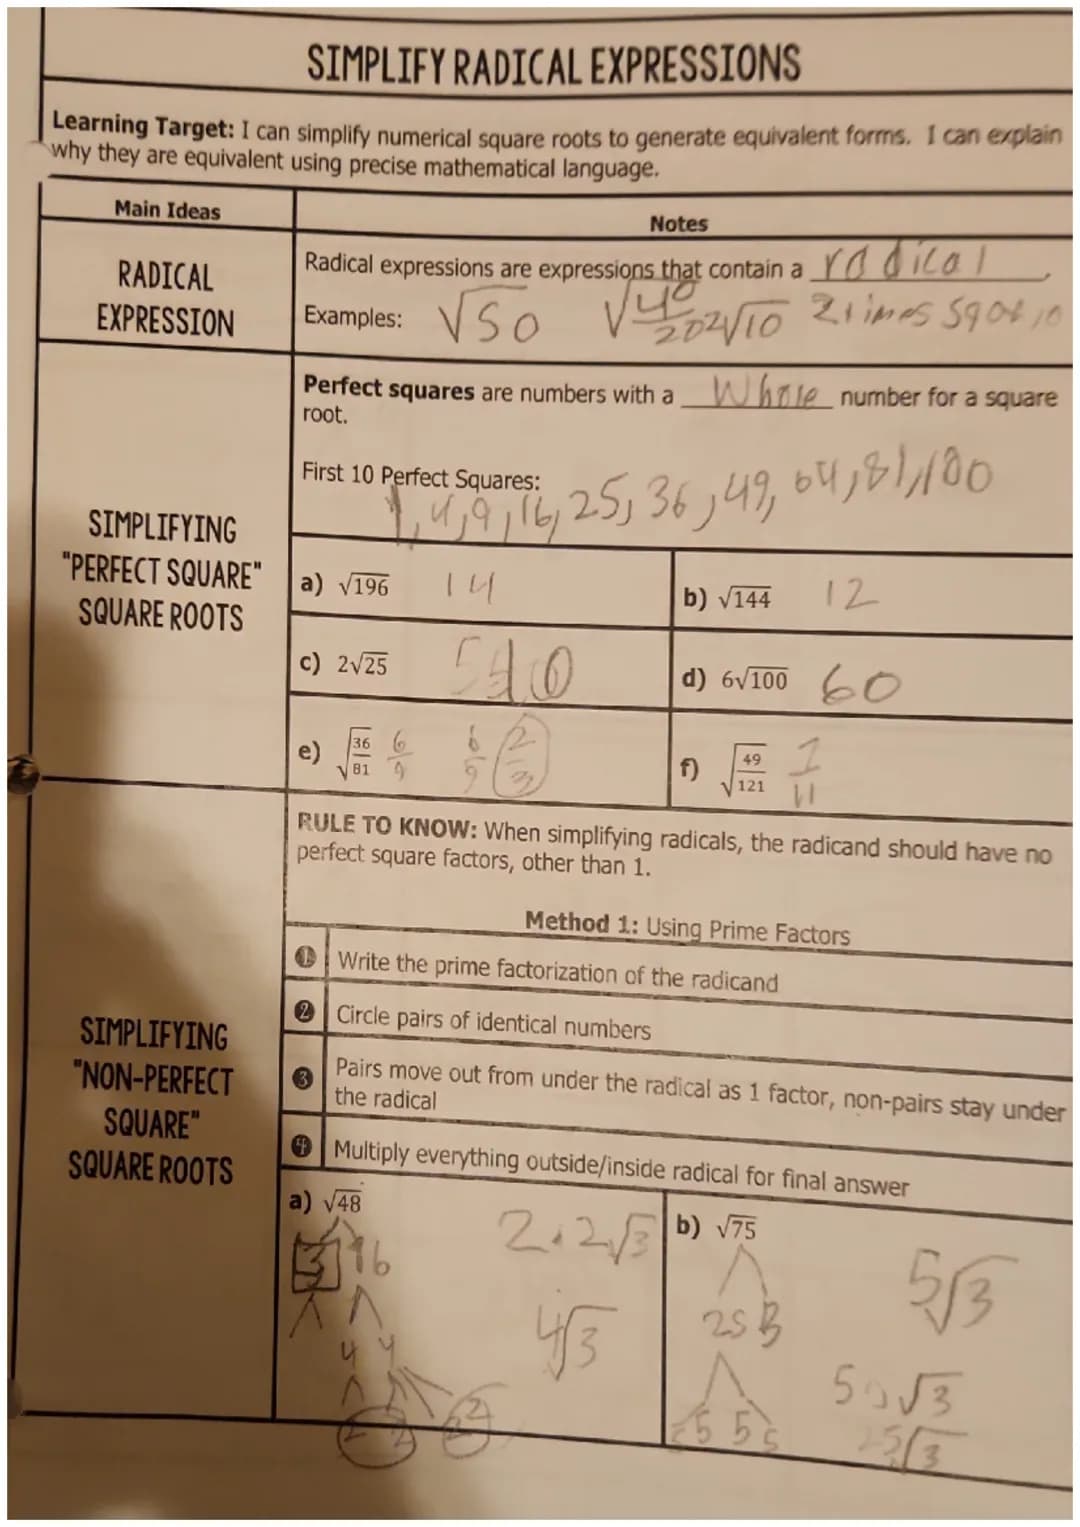 SIMPLIFY RADICAL EXPRESSIONS
Learning Target: I can simplify numerical square roots to generate equivalent forms. I can explain
why they are equivalent using precise mathematical language.
Main Ideas
Notes
RADICAL
EXPRESSION
Radical expressions are expressions that contain a radical.
Examples: √50 √40 2√10 2 times
SIMPLIFYING
"PERFECT SQUARE"
SQUARE ROOTS
Perfect squares are numbers with a Whole number for a square
root.
First 10 Perfect Squares:
1,4,9,16,25,36,49,64,81,100
a) √196 14
b) √144 12
c) 2√25 10
d) 6√100 60
e) √36/81 6/9 6/9 2/3
f) √49/121 7/11
SIMPLIFYING
"NON-PERFECT
SQUARE"
SQUARE ROOTS
RULE TO KNOW: When simplifying radicals, the radicand should have no
perfect square factors, other than 1.
Method 1: Using Prime Factors
1 Write the prime factorization of the radicand
2 Circle pairs of identical numbers
3 Pairs move out from under the radical as 1 factor, non-pairs stay under
the radical
4 Multiply everything outside/inside radical for final answer
a) √48
3 16
4 4
2 2 2 2
2·2√3
4√3
b) √75
25 3
5 5
5√3
5√3